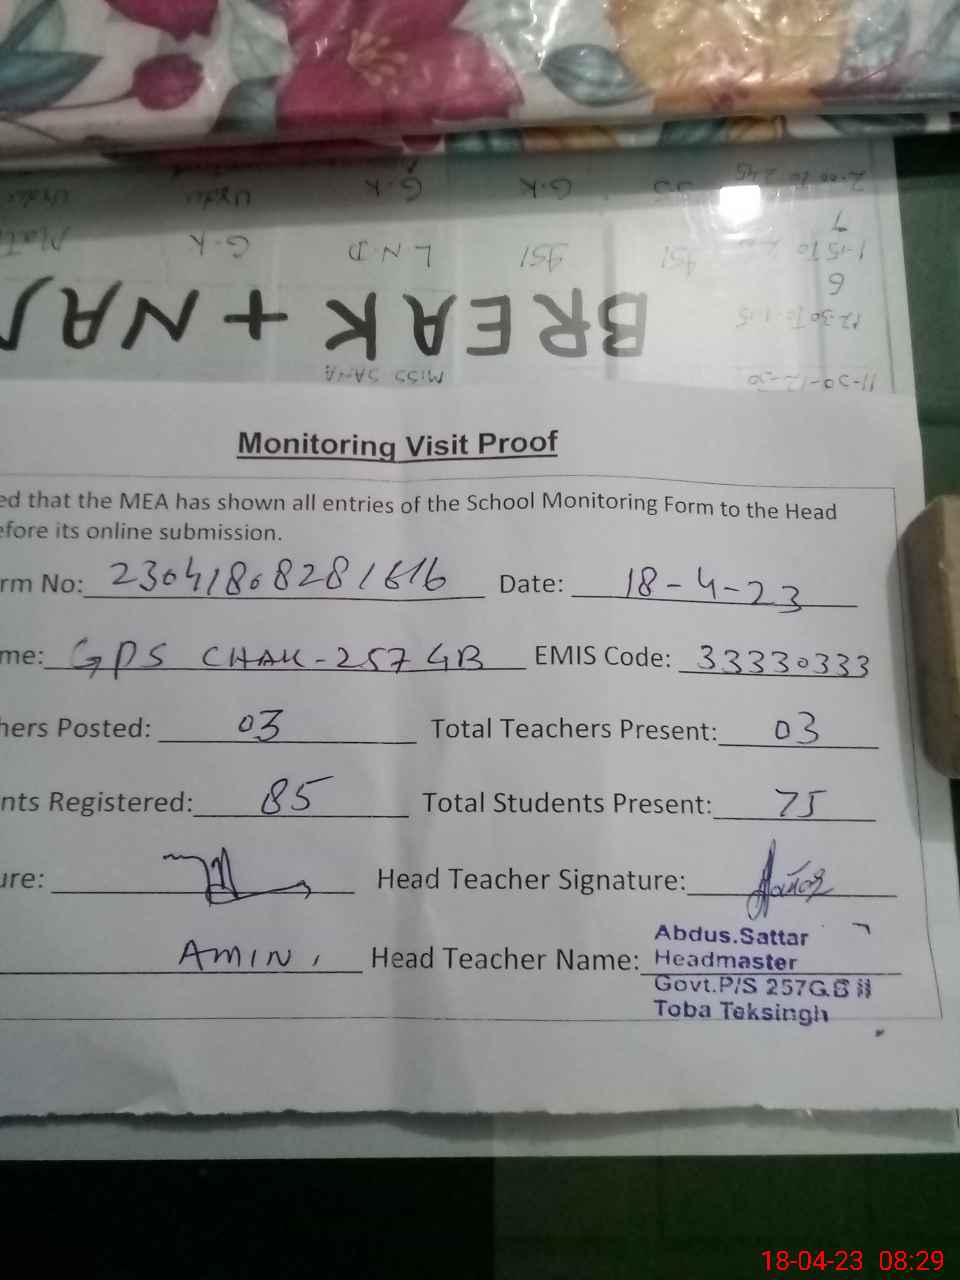 2-00 to 2.45
G.K
G.K
Urdu
Urdu
7
1-15 to
ISL
ISL
L N.D
G.K
Mat
6
12-30 to 1-15
BREAK + NA
11-50-12-30
MISS SANA
Monitoring Visit Proof
ed that the MEA has shown all entries of the School Monitoring Form to the Head
efore its online submission.
rm No: 23041808281616 Date: 18-4-23
me: GPS CHAK-257 GB EMIS Code: 33330333
hers Posted: 03 Total Teachers Present: 03
nts Registered: 85 Total Students Present: 75
ure: Head Teacher Signature:
AMIN, Head Teacher Name: Abdus.Sattar
Headmaster
Govt.P/S 257G.B II
Toba Teksingh
18-04-23 08:29